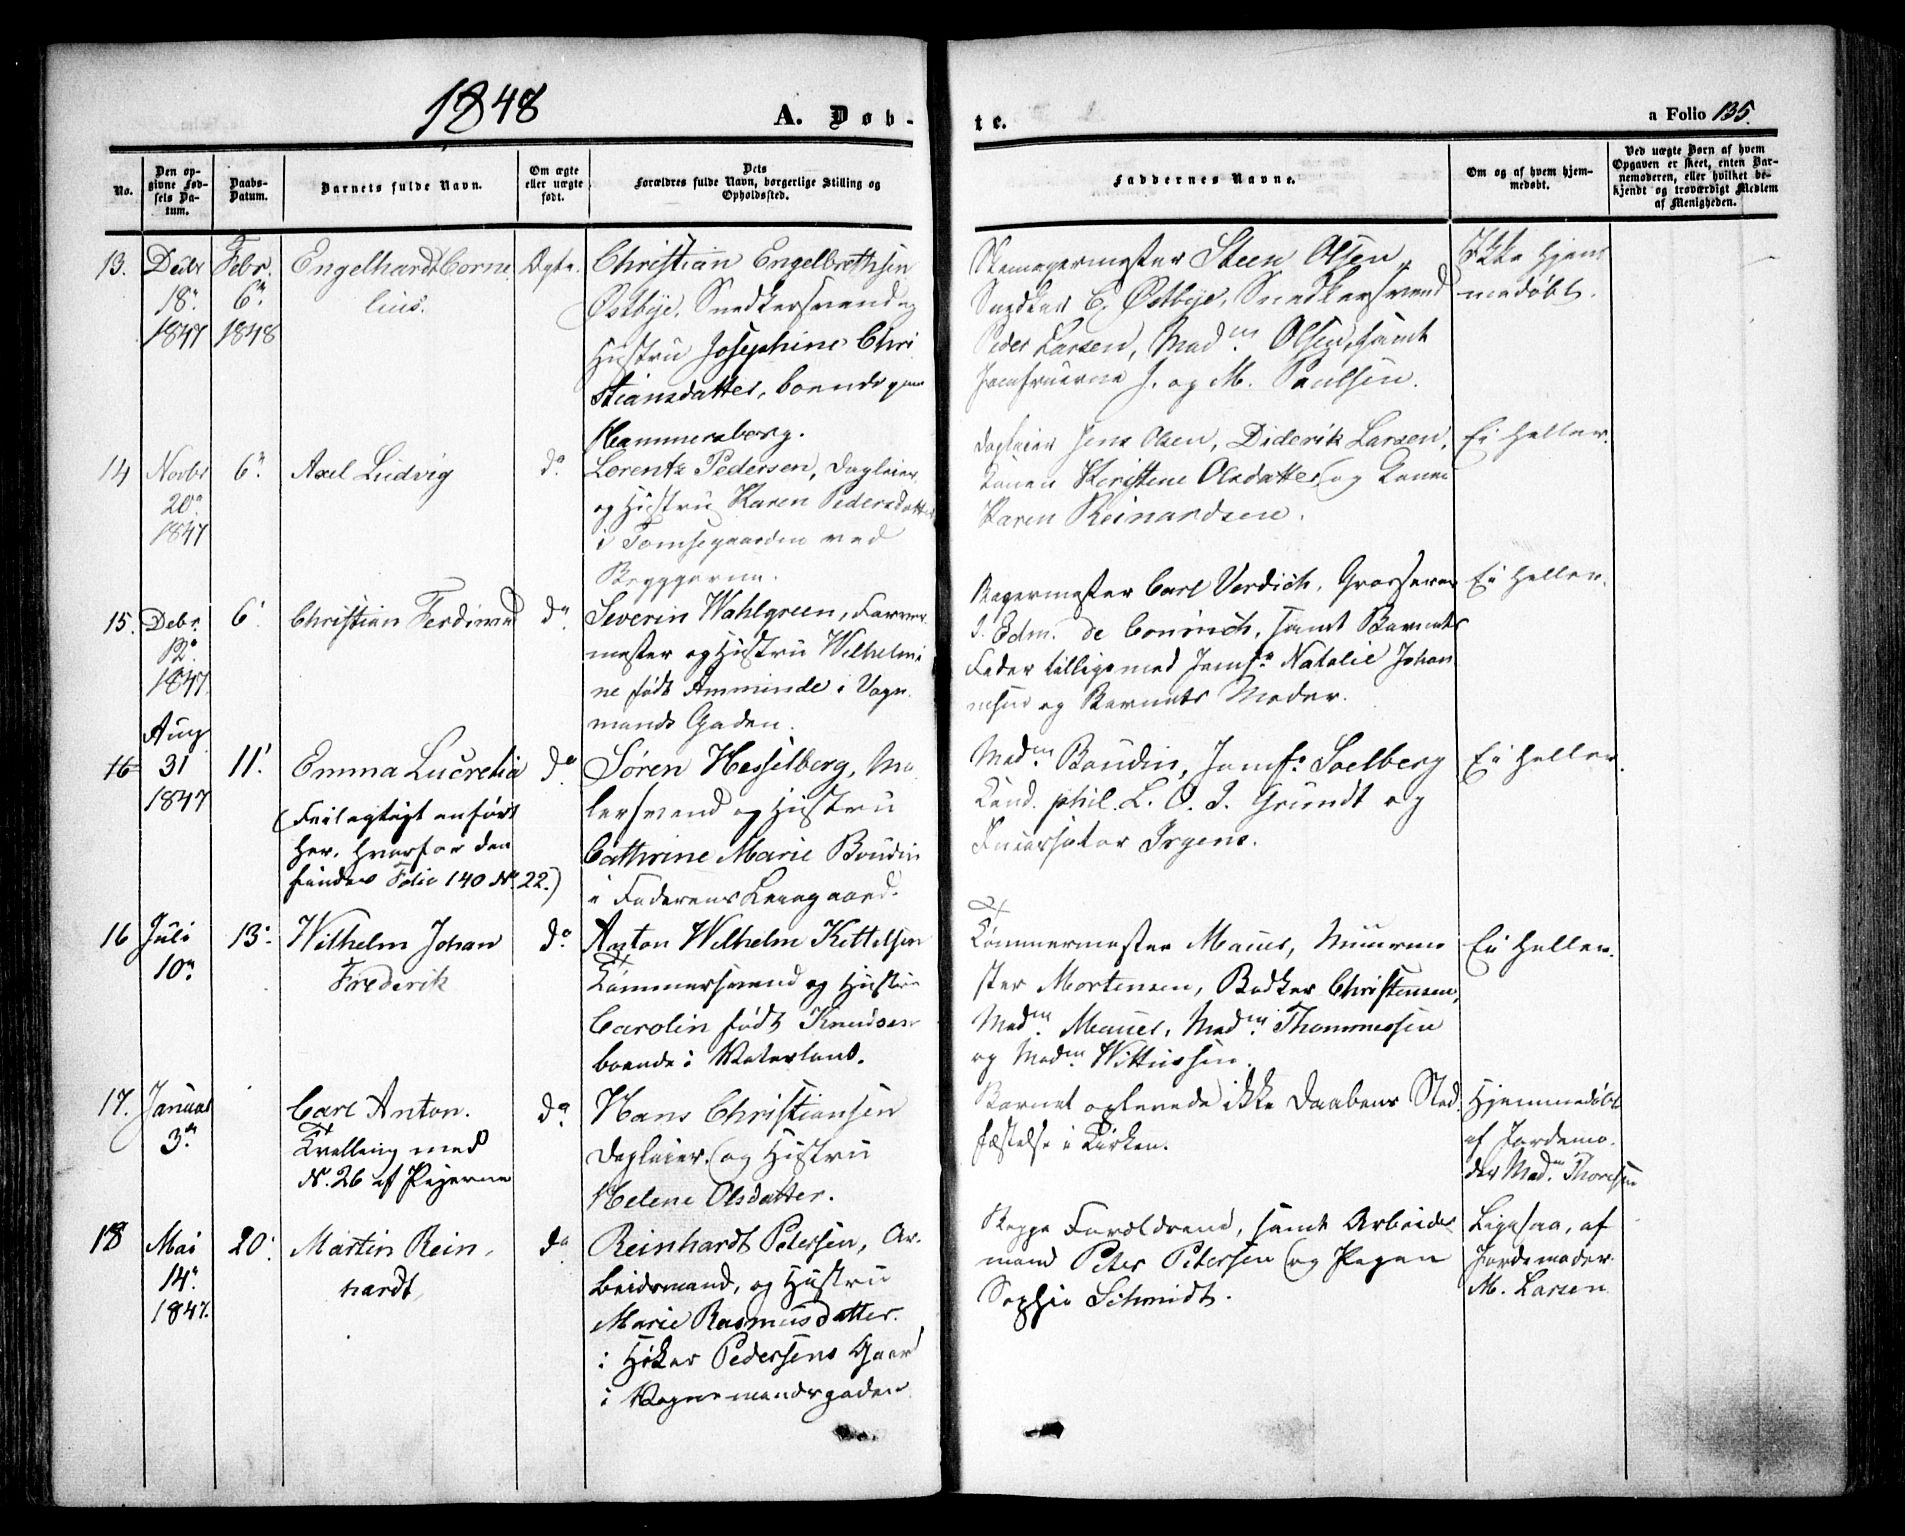 1848
A. Døb-
te.
a Folio 135.
No.
Den op-
givne Fød-
sels Da-
tum.
Daabs-
Datum.
Barnets fulde Navn.
Om ægte
eller uægte
født.
Dets
Forældres fulde Navn, borgerlige Stilling og
Opholdssted.
Faddernes Navne.
Om og af hvem hjem-
medøbt.
Ved uægte Børn af hvem
Opgaven er skeet, enten Bar-
nemoderen, eller hvilket be-
kjendt og troværdigt Medlem
af Menigheden.
13.
Decbr
18.
1847
Febr.
6.
1848
Engelhardt Corne
lius.
Ægte.
Christian Engelbrethsen
Østbye, Snedkersvend og
Hustru Josephine Chri
stiansdatter, boende paa
Hammersborg.
Skomagermester Steen Olsen,
Snedker C. Østbye, Snedkersvend
Peder Larsen, Madm. Olsen, samt
Jomfruerne J. og M. Paulsen.
Ikke hjem
medøbt.
14
Novbr
20
1847
6.
Axel Ludvig
do
Lorentz Pedersen, Dagleier
og Hustru Karen Pedersdatter
i Tomsegaarden ved
Bryggerne.
Dagleier Jens Olsen, Diderik Larsen,
Konen Kiristene Olsdatter og Konen
Karen Reinardsen.
Ei heller.
15.
Debr.
12
1847
6.
Christian Ferdinand
do
Severin Wahlgreen, Farver
mester og Hustru Wilhelmi
ne født Amminde i Vogn
mands Gaden.
Bagermester Carl Verdich, Grosserer
J. Edm. de Coninch, samt Barnets
Fader tilligemed Jomf. Natalie Johan
nesen og Barnets Moder.
Ei heller.
16
Aug
31
1847
11.
Emma Lucretia
(Feilagtigt anført
her, hvorfor den
findes Folio 140 N. 22.)
do
Søren Hesselberg, Ma
lersvend og Hustru
Cathrine Marie Boudin
i Faderens Leiegaard.
Madm. Boudin, Jomf. Soelberg
Cand. phil. L. O. J. Grundt og
Furersøter Irgens.
Ei heller.
16
Juli
10
13.
Wilhelm Johan
Frederik
do
Anton Wilhelm Kittelsen
Tømmersvend og Hustru
Carolin født Knudsen
boende i Vaterland.
Tømmermester Maues, Muurme
ster Mortensen, Bødker Christensen,
Madm. Maues, Madm. Thommesen
og Madm Wittussen.
Ei heller.
17.
Januar
3.
Carl Anton.
Tvelling med
N. 26 af Pigerne
do
Hans Christiansen
Dagleier og Hustru
Helene Olsdatter.
Barnet oplevede ikke Daabens Stad
fæstelse i Kirken.
Hjemmedøbt
af Jordemo-
der Mad. Thoresen
18
Mai
14.
1847.
20.
Martin Rein
hardt
do
Reinhardt Petersen, Ar-
beidsmand, og Hustru
Marie Rasmusdatter.
i Høker Pedersens Gaard
i Vognmandsgaden
Begge Forældrene, samt Arbeids
mand Peter Petersen og Pigen
Sophie Schmidt.
Ligesaa, af
Jordemoder
M. Larsen